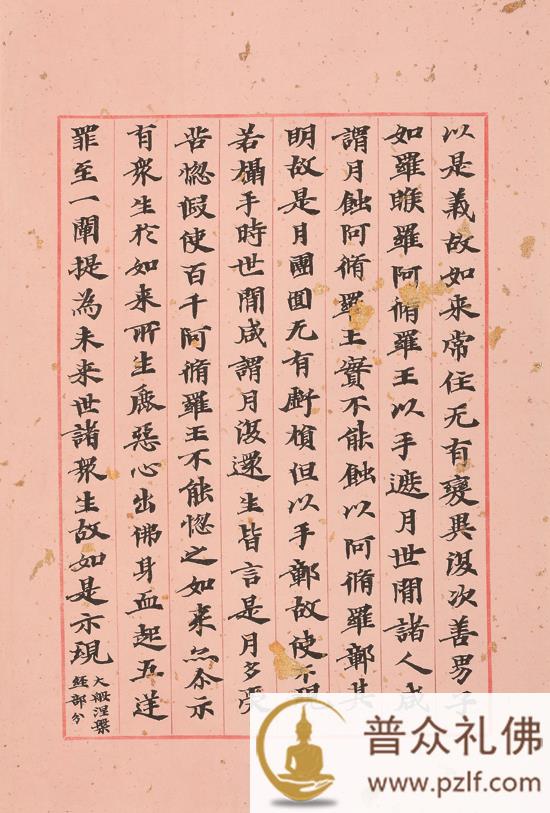 以是義故如来常住无有變異復次善男子
如羅睺羅阿脩羅王以手遮月世間諸人咸
謂月蝕阿脩羅王實不能蝕以阿脩羅鄣其
明故是月團圓无有虧損但以手鄣故使不現
若攝手時世間咸謂月復還生皆言是月多受
苦惱假使百千阿脩羅王不能惱之如来亦尒示
有衆生於如来所生麁惡心出佛身血起五逆
罪至一闡提為未来世諸衆生故如是示現
大般涅槃
經部分
普众礼佛
www.pzlf.com